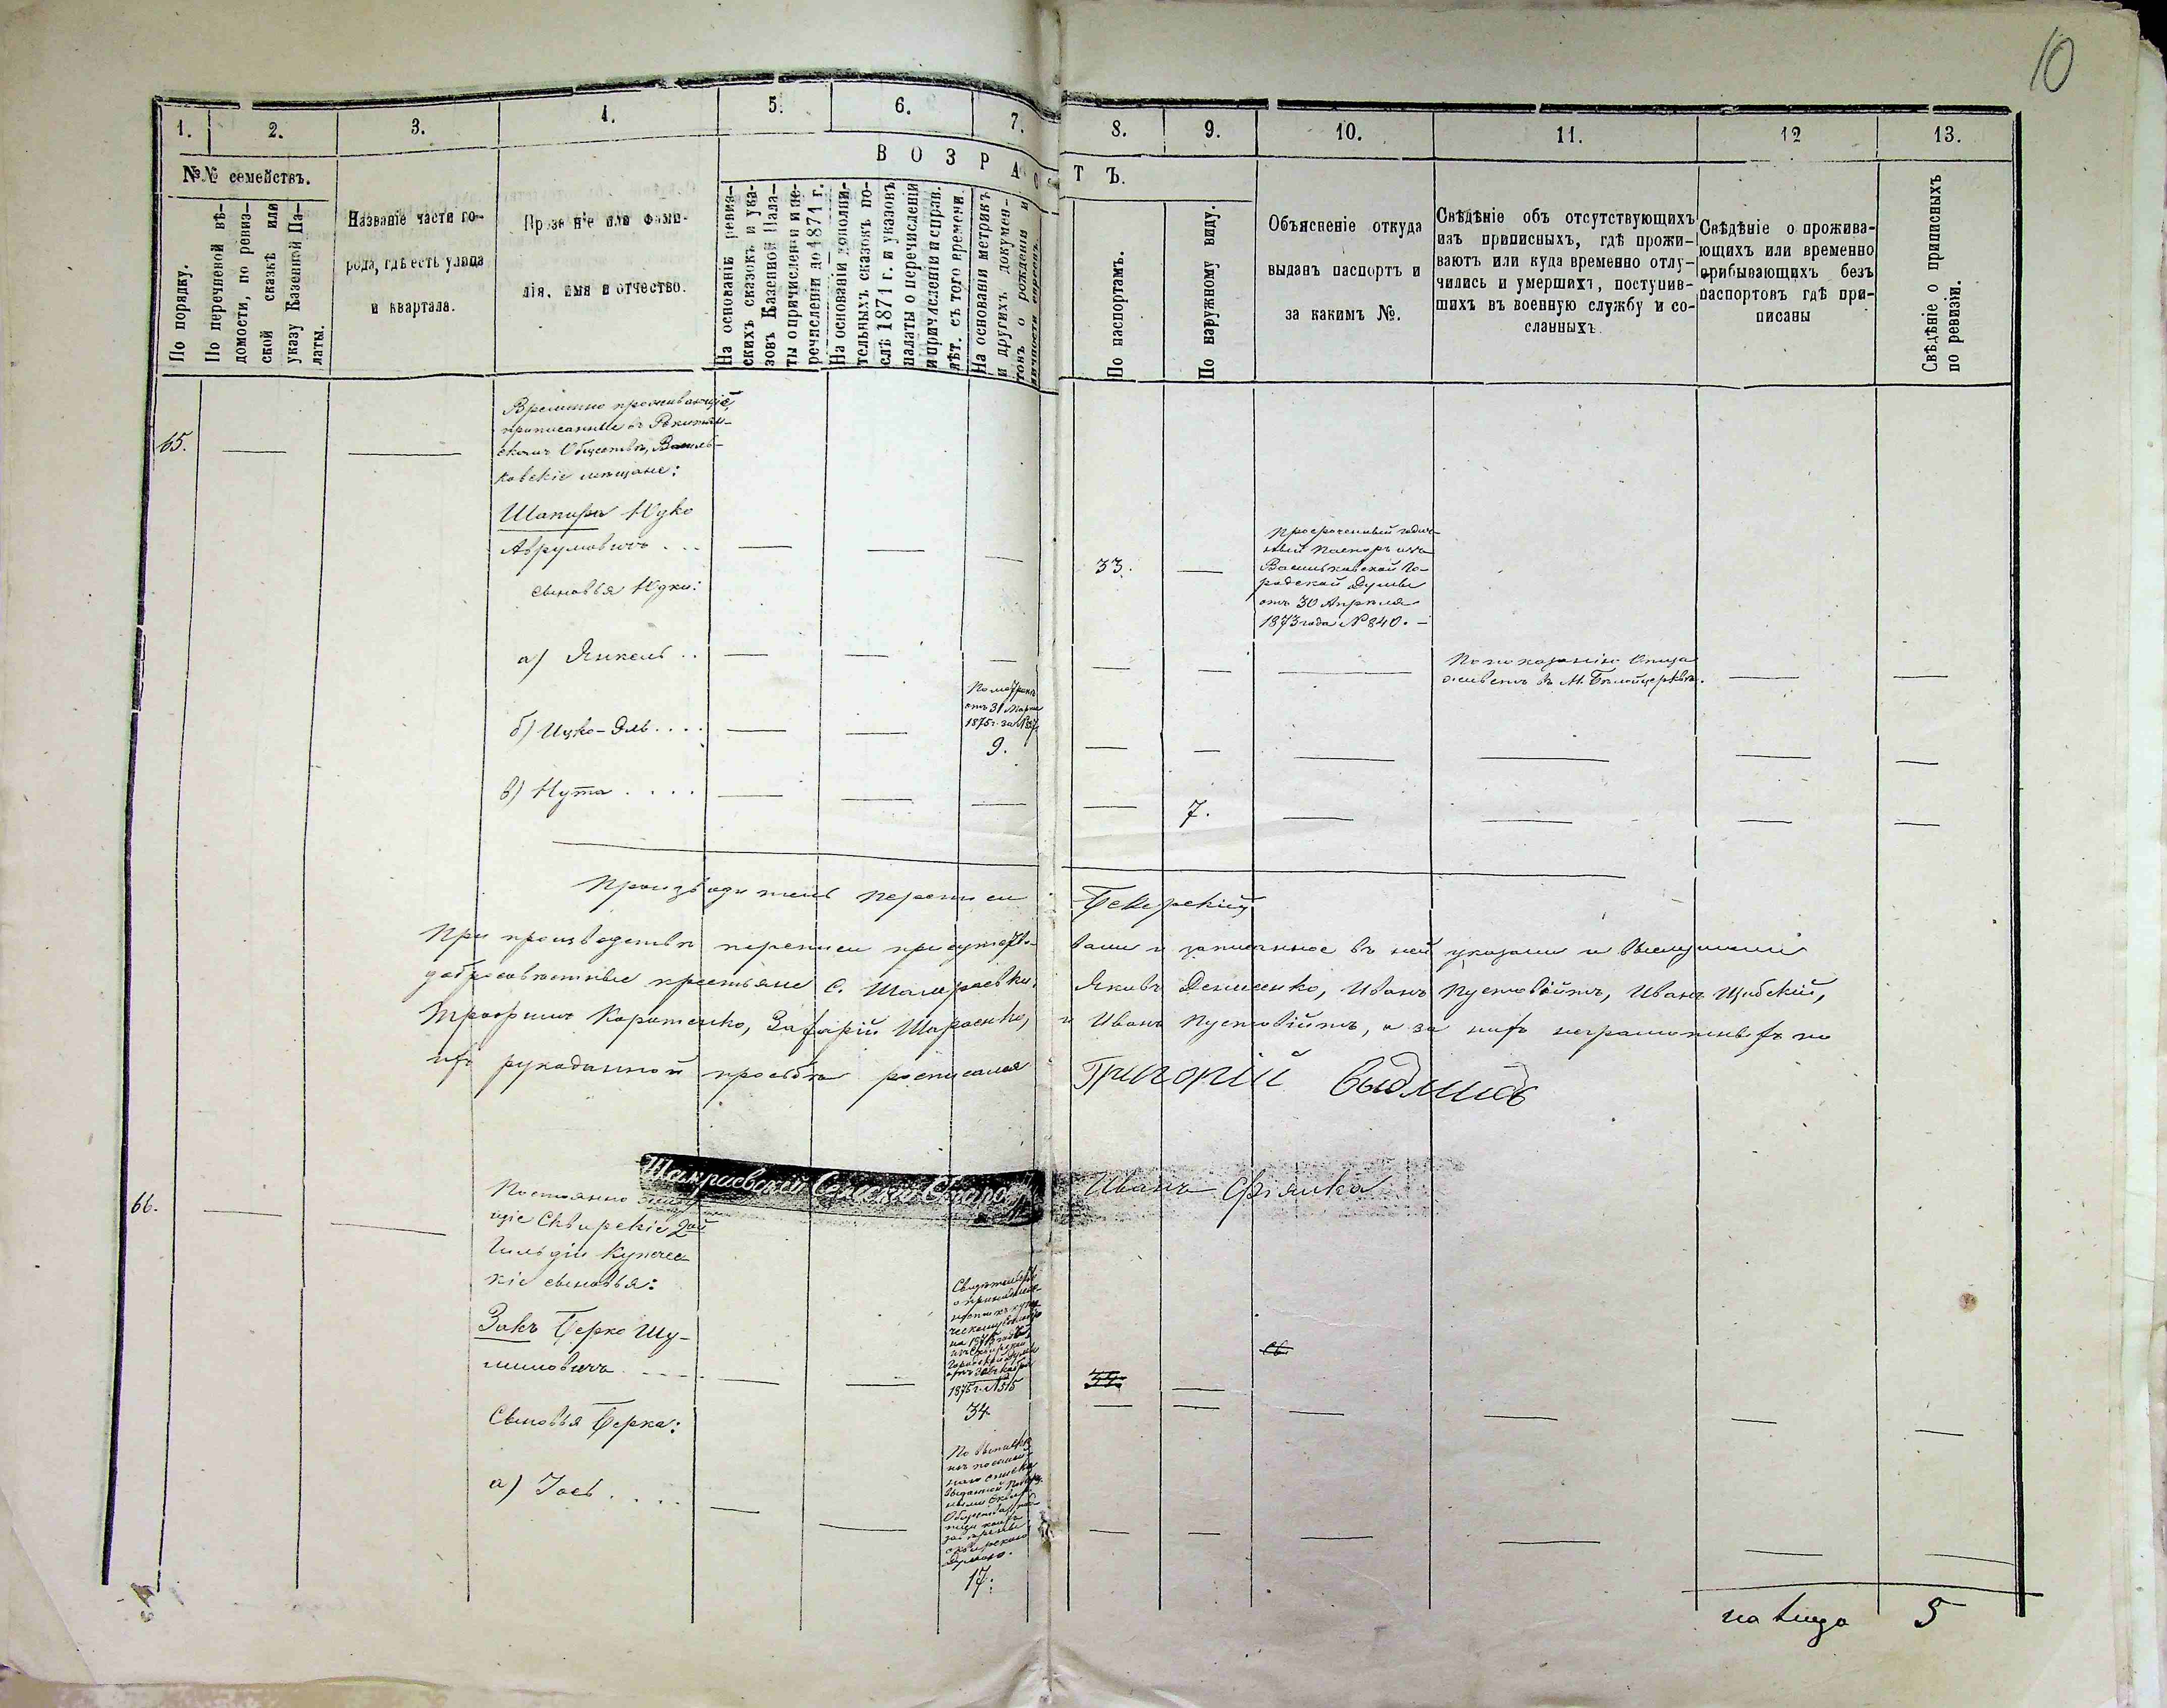 10
1. 2. 3. 4. 5. 6. 7. 8. 9. 10. 11. 12 13.
№№ семействъ.
По порядку.
По перечневой вѣ-
домости, по ревиз-
ской сказкѣ или
указу Казенной Па-
латы.
Названіе части го-
рода, гдѣ есть улица
и квартала.
Прозваніе или фами-
лія, имя и отчество.
ВОЗРАСТЪ.
На основаніи ревиз-
скихъ сказокъ и ука-
зовъ Казенной Пала-
ты о причисленіи и пе-
речисленіи до 1871 г.
На основаніи дополни-
тельныхъ сказокъ по-
слѣ 1871 г. и указовъ
палаты о перечисленіи
и причисленіи и справ.
лѣт. съ того времени.
На основаніи метрикъ
и другихъ докумен-
товъ о рожденіи и
личности евреевъ.
По паспортамъ.
По наружному виду.
Объясненіе откуда
выданъ паспортъ и
за какимъ №.
Свѣдѣніе объ отсутствующихъ
изъ приписныхъ, гдѣ прожи-
ваютъ или куда временно отлу-
чились и умершихъ, поступив-
шихъ въ военную службу и со-
сланныхъ
Свѣдѣніе о прожива-
ющихъ или временно
прибывающихъ безъ
паспортовъ гдѣ при-
писаны
Свѣдѣніе о приписныхъ
по ревизіи.
65.
Временно проживающіе,
приписанные въ Рокитян-
скомъ Обществѣ, Василь-
ковскіе мѣщане:
Шапиръ Юдко
Аврумовичъ . . .
33.
Просроченный годич-
ный паспортъ изъ
Васильковской Го-
родской Думы
отъ 30 Апрѣля
1873 года № 840. —
сыновья Юдки:
а) Янкель . .
По показанію Отца
живетъ въ М. Бѣлойцеркви.
б) Ицко-Эль . . . .
По метрикѣ
отъ 31 Марта
1875 г. за №
9.
в) Нута . . . .
7.
Производитель переписи Беверскій
При производствѣ переписи присутство- вали и записанное въ ней указали и выслушали
добросовѣстные крестьяне С. Шамраевки, Яковъ Денисенко, Иванъ Пустовійтъ, Иванъ Щибскій,
Трофимъ Коротенко, Захарій Шараенко, и Иванъ Пустовійтъ, а за нихъ неграмотныхъ по
ихъ рукоданной просьбѣ росписался Григорій
Шамраевскій Сельскій Староста Иванъ
66.
Постоянно
щіе Сквирскіе 2ой
Гильдіи Купечес-
кіе сыновья:
Закъ Берко Шу-
лимовичъ . . . .
Свидѣтельство
о принадлеж-
ности къ купе-
ческому
на 1875
изъ Сквирской
Городской Думы
1875 г. № 515
34
св.
34.
Сыновья Берка:
а) Іось . . . .
По выпискѣ
изъ посемей-
наго списка
выданной
Думою.
17.
на лицо 5